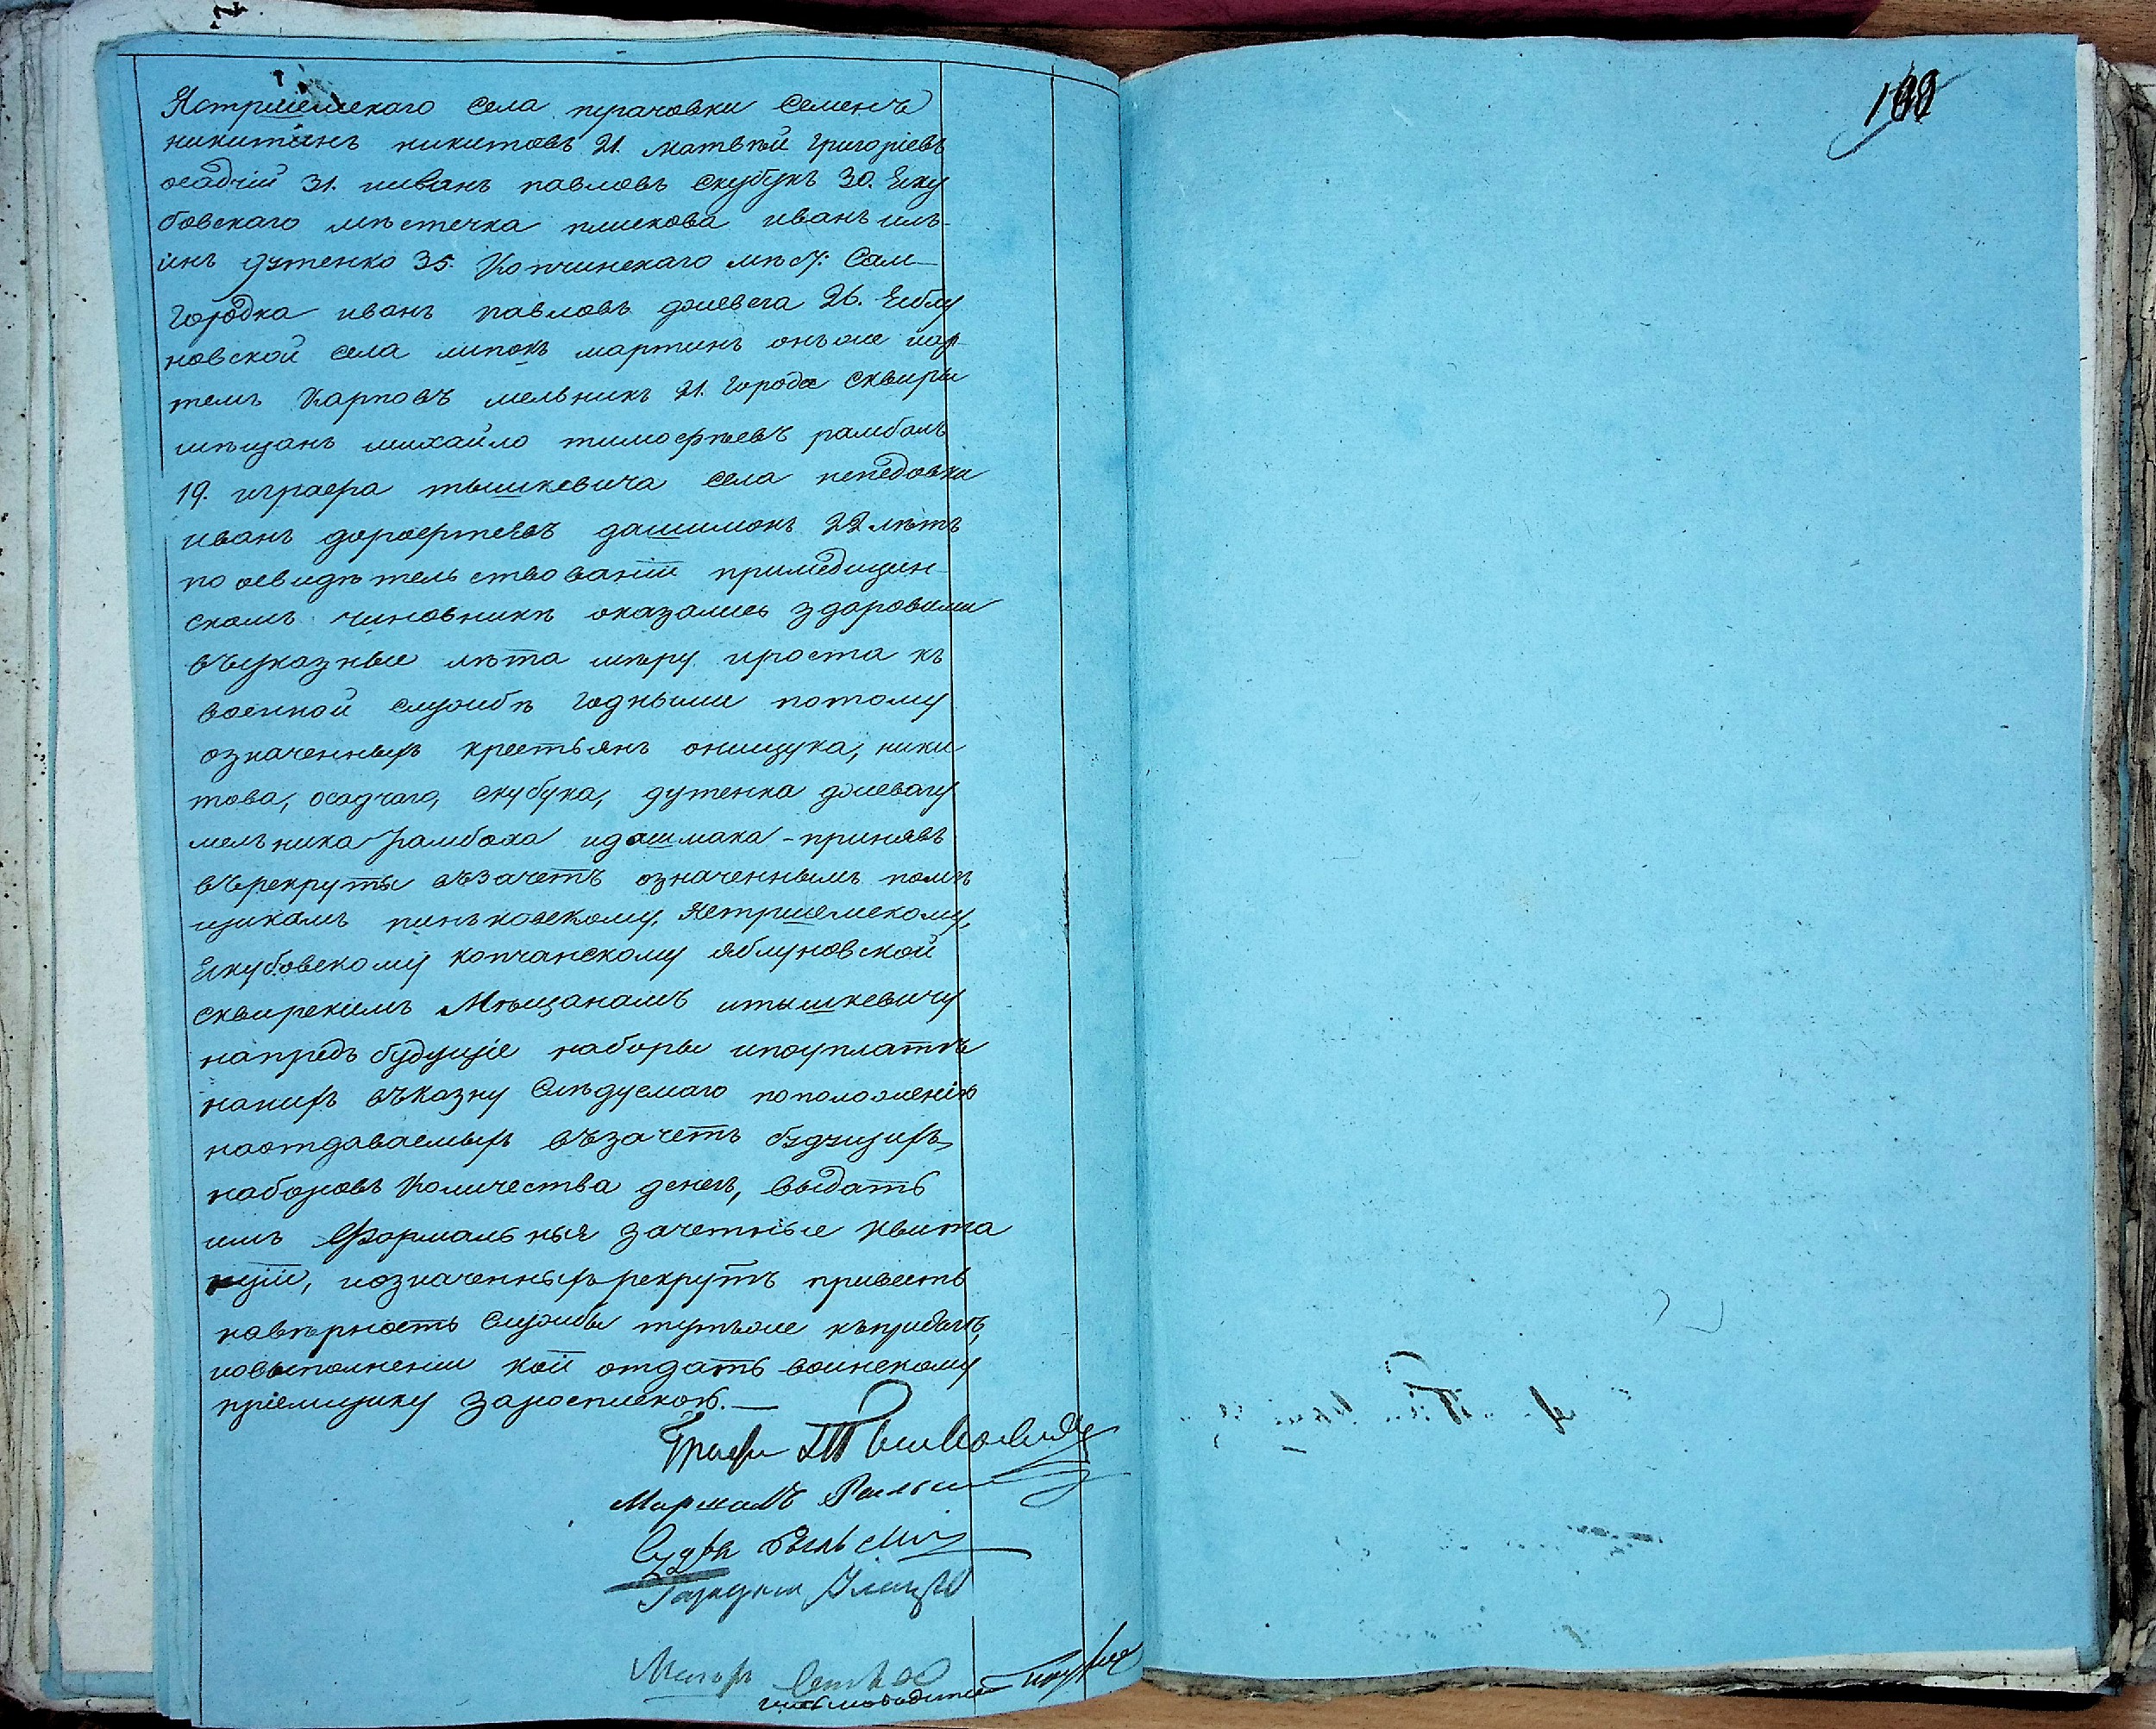 Ястршемскаго села прачовки Семенъ
никитинъ никитовъ 21. матвѣй Григоріевъ
осадчій 31. иванъ павловъ Скубукъ 30. Еку
бовскаго мѣстечка плискова иванъ иль-
инъ дутенко 35. Копчинскаго мѣст: Сам-
городка иванъ павловъ долевега 26. Яблу
новской села липокъ мартинъ онъ же
Карповъ мельникъ 21. Города Сквиры
мѣщанъ михайло тимофѣевъ рамбахъ
19. играфа тышкевича села пепедовки
иванъ дорофѣевъ дашмокъ 22 лѣтъ
по освидѣтельствованіи примедицин-
скомъ чиновникѣ оказались здоровыми
въуказные лѣта мѣру ироста къ
военной службѣ годными потому
означенныхъ крестьянъ онищука, ники
това, осадчаго, скубука, дутенка долевагу
мельника рамбаха идашмака - принявъ
въ рекруты възачетъ означеннымъ помѣ
щикамъ пиньковскому, Ястршемскому,
Екубовскому копчанскому яблуновской
сквирскимъ Мѣщанамъ итышкевичу
напредъ будущіе наборы ипоуплатѣ
наихъ въказну Слѣдуемаго поположенію
наотдаваемыхъ възачетъ будущихъ
наборовъ Количества денегъ, выдать
имъ Формальныя зачетные квита
нціи, иозначенныхъ рекрутъ привесть
навѣрность Службы тутъже къ присягѣ,
повыполненіи кой отдать воинскому
пріемщику зароспиською. —
Графъ Тышкевичъ
Маршалъ
Судья
Маіоръ
письмоводитель